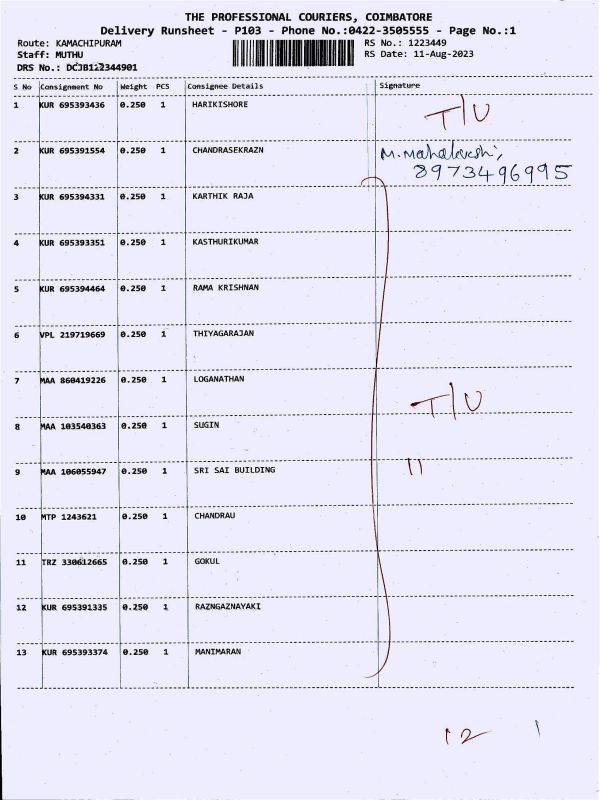 THE PROFESSIONAL COURIERS, COIMBATORE
Delivery Runsheet - P103 - Phone No.:0422-3505555 - Page No.:1
Route: KAMACHIPURAM RS No.: 1223449
Staff: MUTHU RS Date: 11-Aug-2023
DRS No.: DCJB122344901
S No Consignment No Weight PCS Consignee Details Signature
1 KUR 695393436 0.250 1 HARIKISHORE T/U
2 KUR 695391554 0.250 1 CHANDRASEKRAZN M.Mahalakshi,
8973496995
3 KUR 695394331 0.250 1 KARTHIK RAJA
4 KUR 695393351 0.250 1 KASTHURIKUMAR
5 KUR 695394464 0.250 1 RAMA KRISHNAN
6 VPL 219719669 0.250 1 THIYAGARAJAN
7 MAA 860419226 0.250 1 LOGANATHAN T/U
8 MAA 103540363 0.250 1 SUGIN
9 MAA 106055947 0.250 1 SRI SAI BUILDING 11
10 MTP 1243621 0.250 1 CHANDRAU
11 TRZ 330612665 0.250 1 GOKUL
12 KUR 695391335 0.250 1 RAZNGAZNAYAKI
13 KUR 695393374 0.250 1 MANIMARAN
12 1